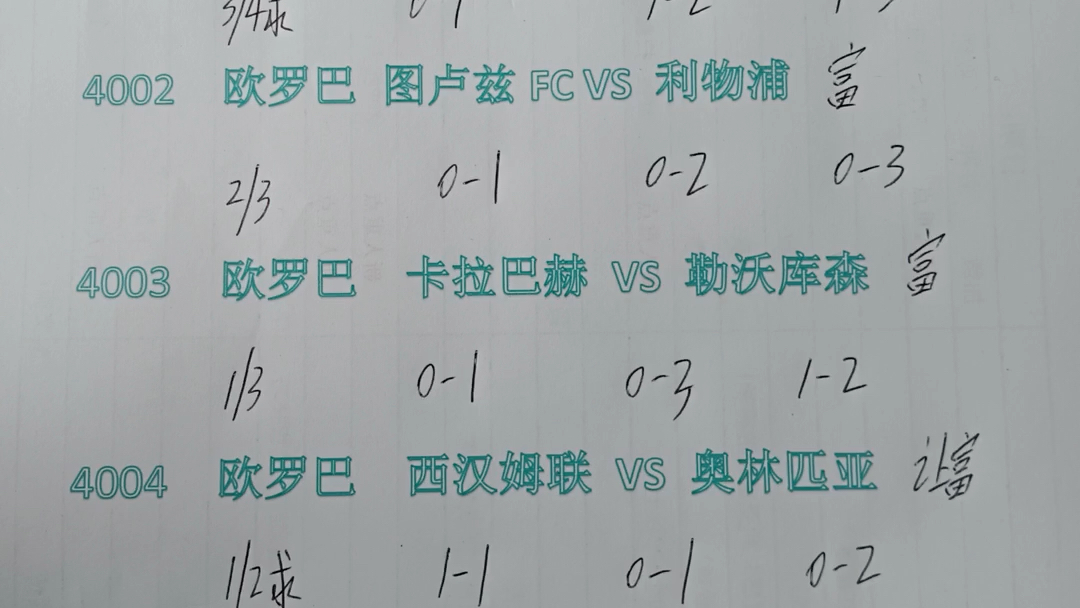 3/4球 0-1 1-2 1-3
4002 欧罗巴 图卢兹 FC VS 利物浦 富
2/3 0-1 0-2 0-3
4003 欧罗巴 卡拉巴赫 VS 勒沃库森 富
1/3 0-1 0-3 1-2
4004 欧罗巴 西汉姆联 VS 奥林匹亚 让富
1/2球 1-1 0-1 0-2